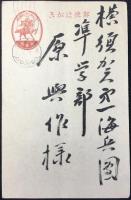 郵便はかき
横須賀海兵團
準学部
原與作様